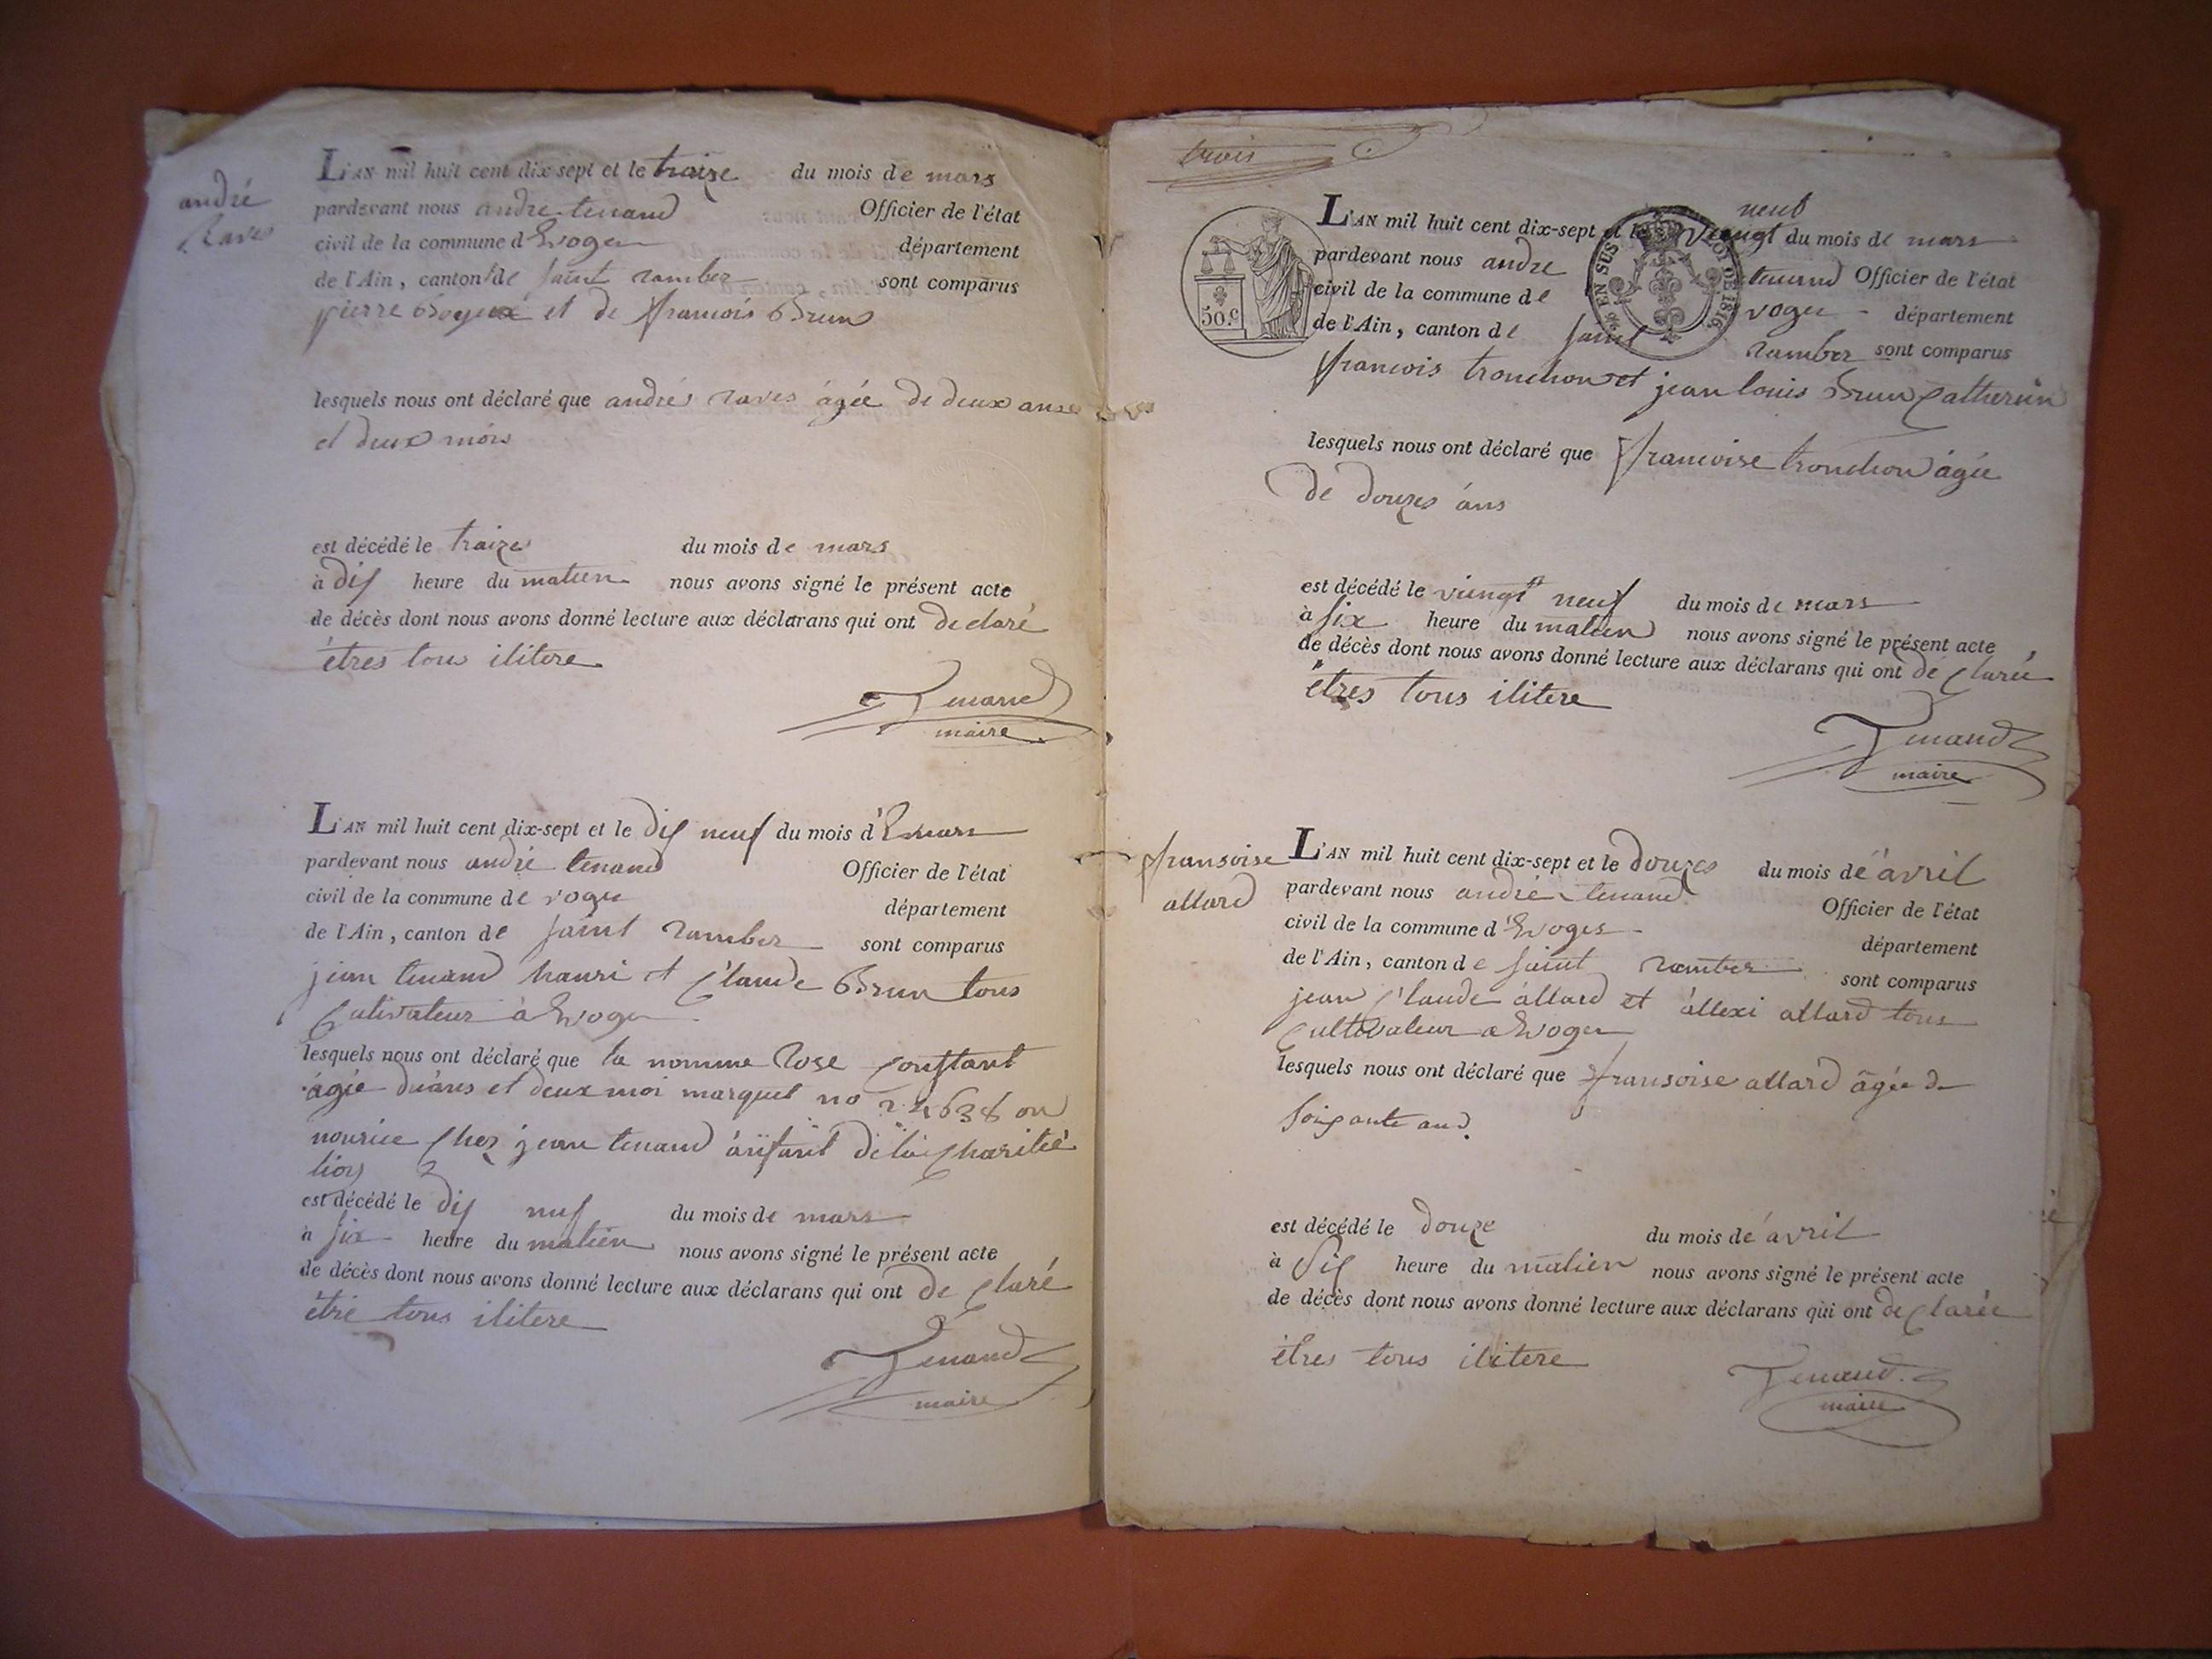 andré
Raves
L'AN mil huit cent dix-sept et le traize du mois de mars
pardevant nous andre tenand Officier de l'état
civil de la commune d Evoges département
de l'Ain, canton de saint ramber sont comparus
pierre Boyeux et de francois Brun
lesquels nous ont déclaré que andrés raves agée de deux anse
et deux mois
est décédé le traizes du mois de mars
à dis heure du matien nous avons signé le présent acte
de décès dont nous avons donné lecture aux déclarans qui ont declaré
êtres tous ilitere
Tenand
maire
L'AN mil huit cent dix-sept et le dis neuf du mois d' mars
pardevant nous andré tenand Officier de l'état
civil de la commune de voges département
de l'Ain, canton de saint ramber sont comparus
jean tenand hanri et Claude Brun tous
Cultivateur à Evoges
lesquels nous ont déclaré que la nomme rose Constant
âgée et deux moi marquet no on
nourice Chez jean tenand anfant de la Charitéé
lion
est décédé le dis nuf du mois de mars
à six heure du matien nous avons signé le présent acte
de décès dont nous avons donné lecture aux déclarans qui ont de Claré
être tous ilitere
Tenand
maire
trois
50.c
EN SUS
LOI DE 1816
neuf
L'AN mil huit cent dix-sept et le viengt du mois de mars
pardevant nous andre tenand Officier de l'état
civil de la commune de voges département
de l'Ain, canton de saint ramber sont comparus
francois tronchon et jean louis Brun Catherin
lesquels nous ont déclaré que francoise tronchon âgée
de douzes ans
est décédé le viengt neuf du mois de mars
à six heure du matien nous avons signé le présent acte
de décès dont nous avons donné lecture aux déclarans qui ont dé Clarée
êtres tous ilitere
Tenand
maire
fransoise
allard
L'AN mil huit cent dix-sept et le douzes du mois de avril
pardevant nous andré tenand Officier de l'état
civil de la commune d'Evoges département
de l'Ain, canton de saint ramber sont comparus
jean Claude allard et allexi allard tous
Cultivateur a Evoges
lesquels nous ont déclaré que fransoise allard âgée de
soixante ans.
est décédé le douze du mois de avril
à heure du matien nous avons signé le présent acte
de décès dont nous avons donné lecture aux déclarans qui ont de Clarée
êtres tous ilitere
Tenand
maire